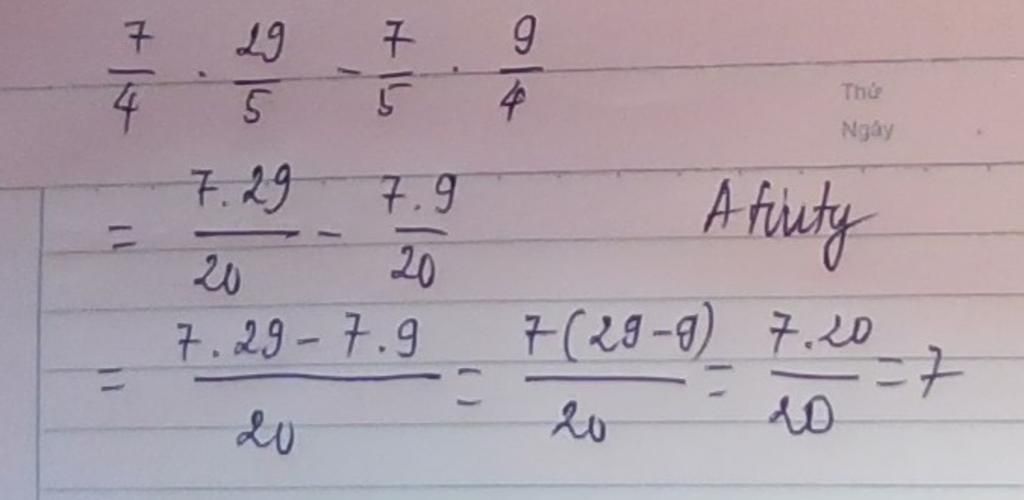 7/4 . 29/5 - 7/5 . 9/4
Thứ
Ngày
= 7.29/20 - 7.9/20
= 7.29 - 7.9/20 = 7(29-9)/20 = 7.20/20 = 7